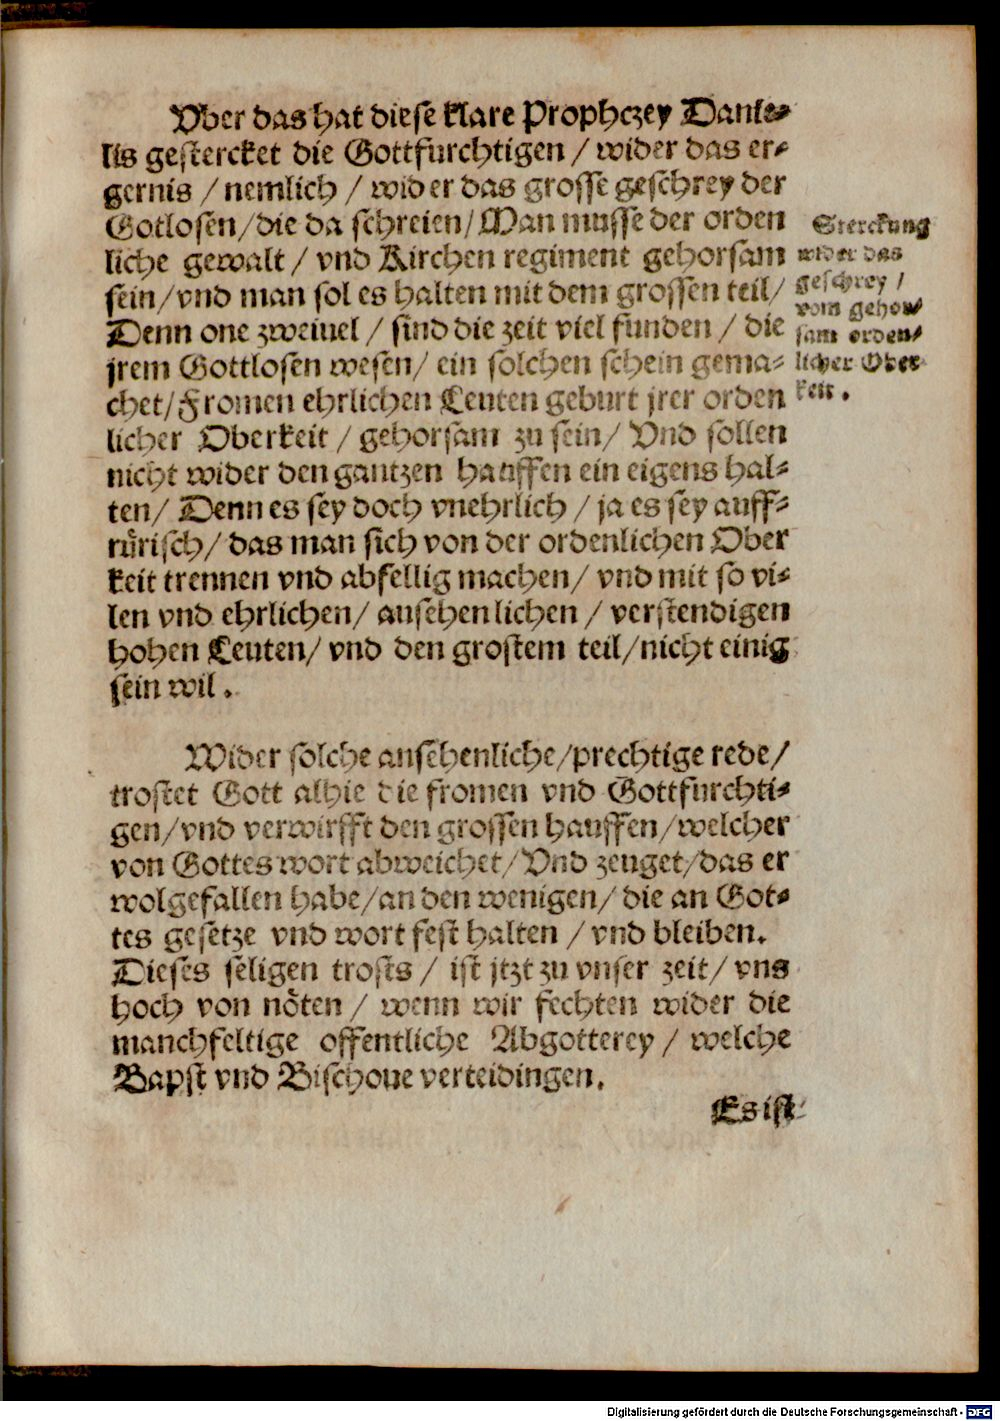 Vber das hat diese klare Prophezey Danie-
lis gestercket die Gottfurchtigen / wider das er-
gernis / nemlich / wider das grosse geschrey der
Gotlosen / die da schreien / Man musse der orden
liche gewalt / vnd Kirchen regiment gehorsam
sein / vnd man sol es halten mit dem grossen teil /
Denn one zweiuel / sind die zeit viel funden / die
jrem Gottlosen wesen / ein solchen schein gema-
chet / Fromen ehrlichen Leuten geburt jrer orden
licher Oberkeit / gehorsam zu sein / Vnd sollen
nicht wider den gantzen hauffen ein eigens hal-
ten / Denn es sey doch vnehrlich / ja es sey auff-
rürisch / das man sich von der ordenlichen Ober
keit trennen vnd abfellig machen / vnd mit so vi-
len vnd ehrlichen / ansehenlichen / verstendigen
hohen Leuten / vnd den grostem teil / nicht einig
sein wil .
Sterckung
wider das
geschrey /
vom gehor-
sam orden-
licher Ober
keit .
Wider solche ansehenliche / prechtige rede /
trostet Gott alhie die fromen vnd Gottfurchti-
gen / vnd verwirfft den grossen hauffen / welcher
von Gottes wort abweichet / Vnd zeuget / das er
wolgefallen habe / an den wenigen / die an Got-
tes gesetze vnd wort fest halten / vnd bleiben.
Dieses seligen trosts / ist jtzt zu vnser zeit / vns
hoch von nöten / wenn wir fechten wider die
manchfeltige offentliche Abgotterey / welche
Bapst vnd Bischoue verteidingen.
Es ist
Digitalisierung gefördert durch die Deutsche Forschungsgemeinschaft - DFG